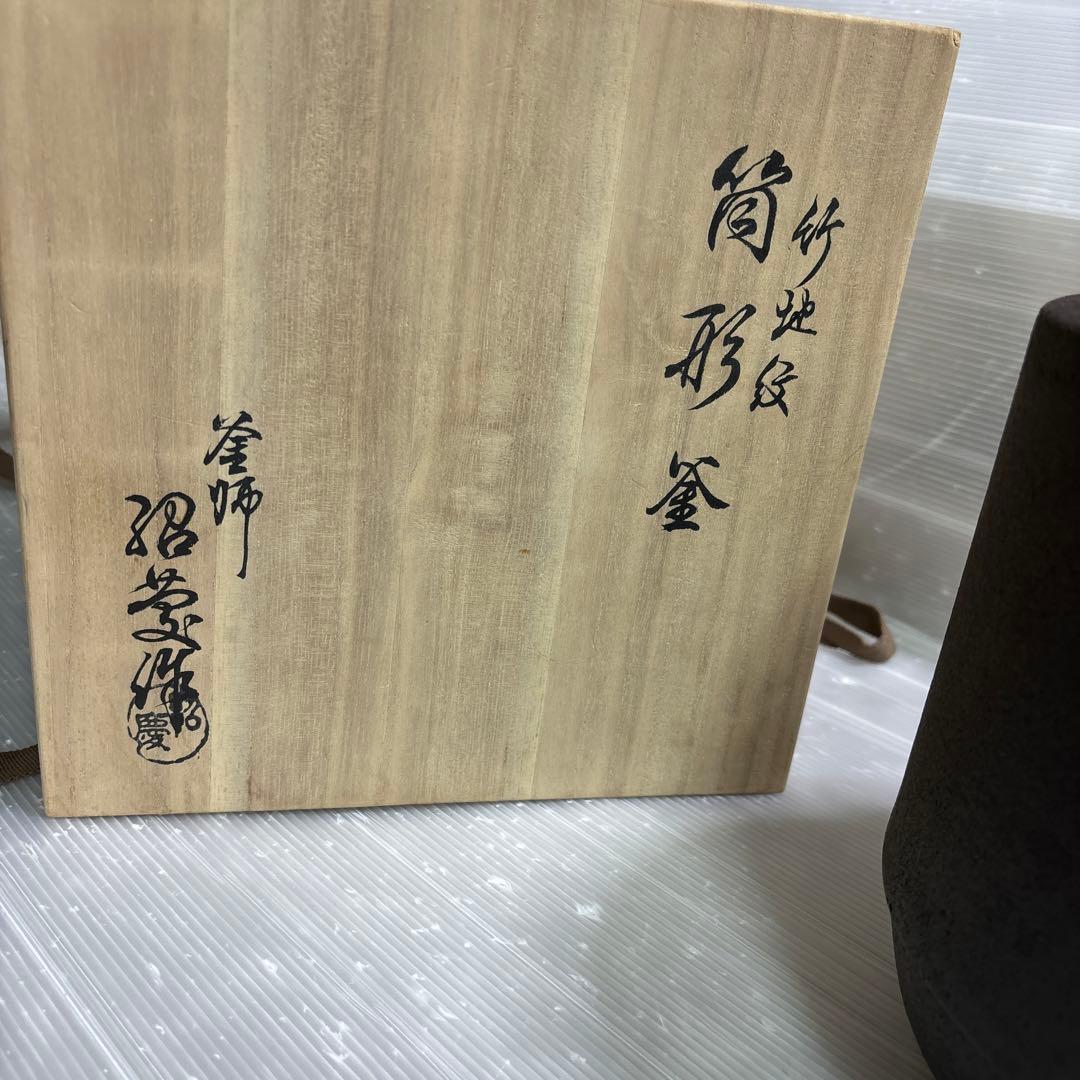 竹地紋
筒形釜
釜師
紹慶作
紹慶